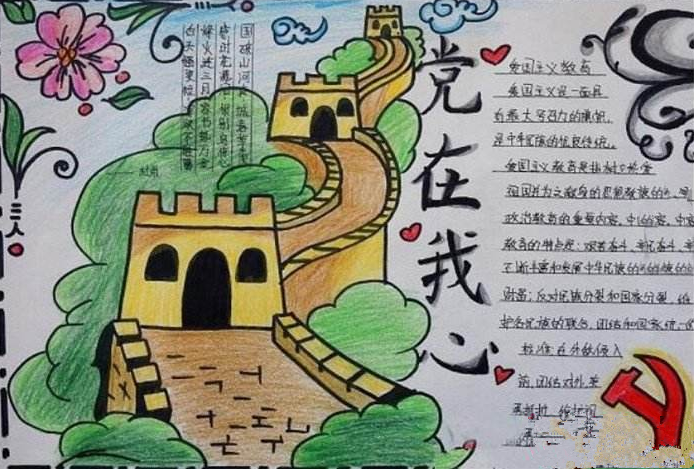 国破山河在 城春草木深
感时花溅泪 恨别鸟惊心
烽火连三月 家书抵万金
白头搔更短
党在我心
爱国主义教育
爱国主义是一面具
有最大号召力的旗帜，
是中华民族的优良传统。
爱国主义教育是指树立热爱
祖国并为之献身的思想教
政治教育的重要内容。
教育的特点是：艰苦奋斗、
不断丰富和发展中华民族的
财富；反对民族分裂和国家分裂，
护各民族的联合、团结和国家统一
在外敌侵入
前，团结对外